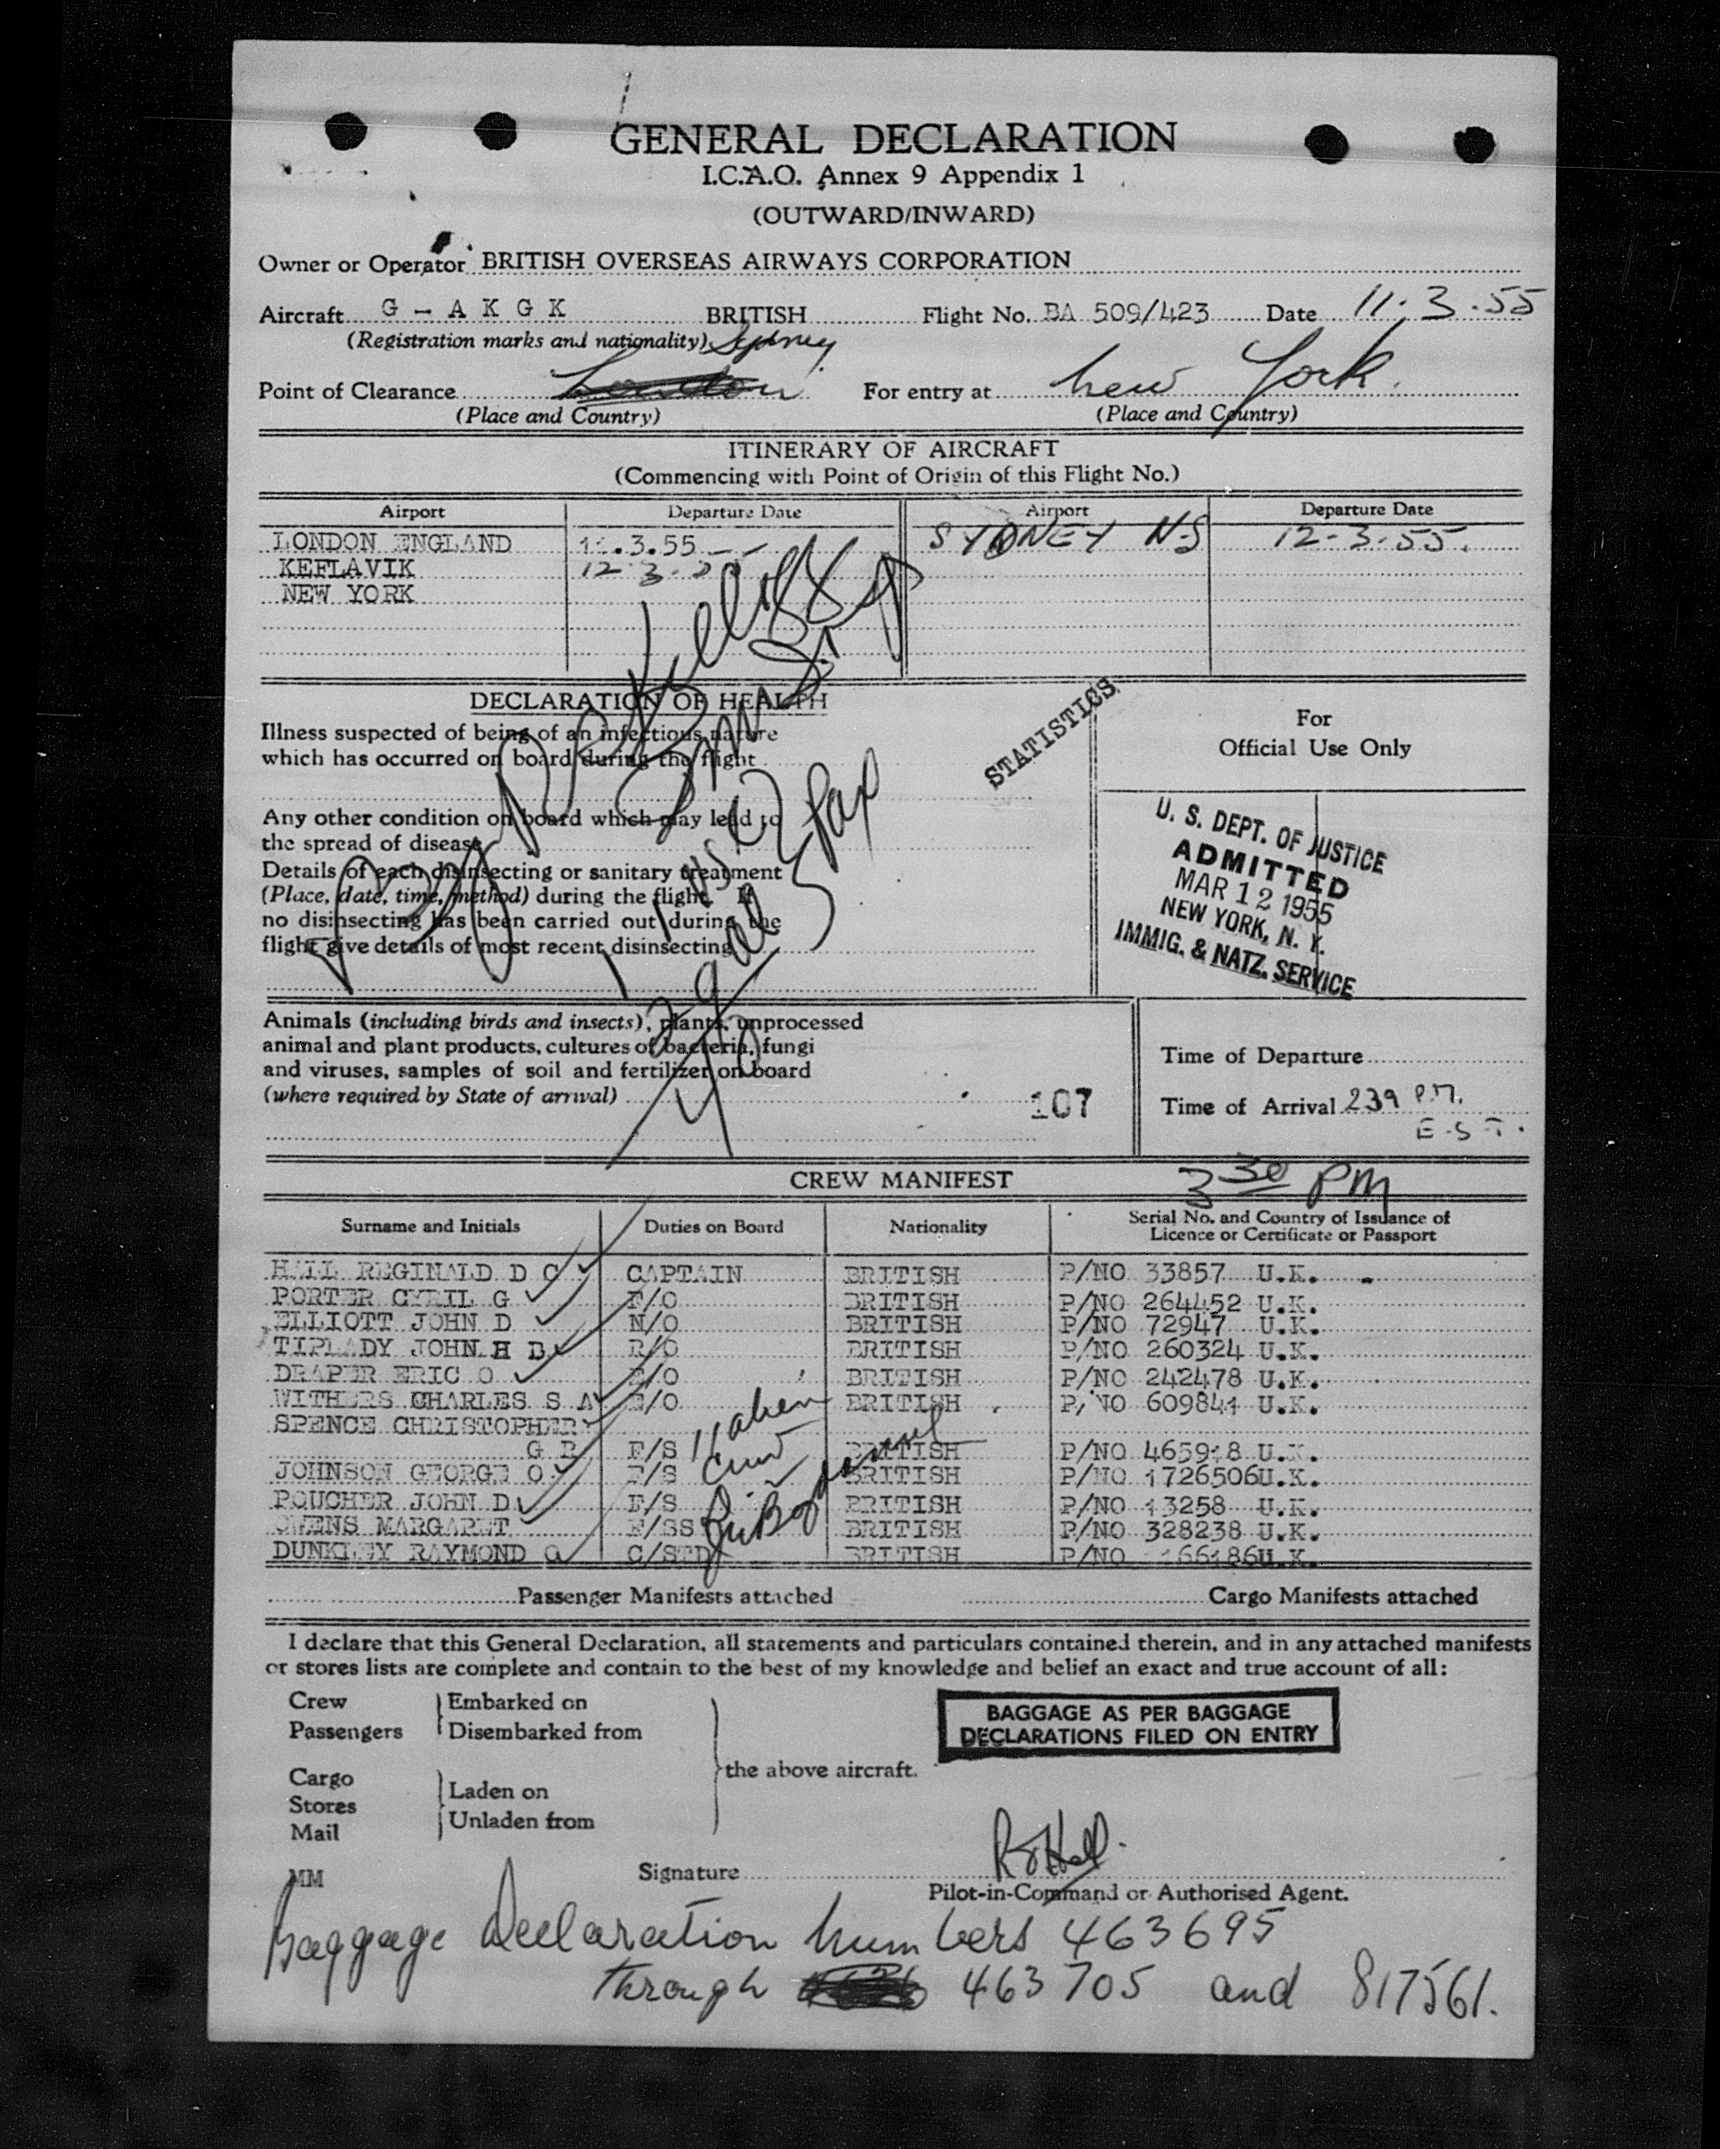 GENERAL DECLARATION
I.C.A.O. Annex 9 Appendix 1
(OUTWARD/INWARD)
Owner or Operator BRITISH OVERSEAS AIRWAYS CORPORATION
Aircraft G - A K G K BRITISH Flight No. BA 509/423 Date 11.3.55
(Registration marks and nationality) Sydney
Point of Clearance London For entry at New York.
(Place and Country) (Place and Country)
ITINERARY OF AIRCRAFT
(Commencing with Point of Origin of this Flight No.)
Airport Departure Date Airport Departure Date
LONDON ENGLAND 11.3.55 SYDNEY N.S 12-3-55.
KEFLAVIK 12 3
NEW YORK
DECLARATION OF HEALTH
Illness suspected of being of an infectious nature
which has occurred on board during the flight
Any other condition on board which may lead to
the spread of disease
Details of each disinsecting or sanitary treatment
(Place, date, time, method) during the flight. If
no disinsecting has been carried out during the
flight give details of most recent disinsecting
STATISTICS
For
Official Use Only
U. S. DEPT. OF JUSTICE
ADMITTED
MAR 12 1955
NEW YORK, N. Y.
IMMIG. & NATZ. SERVICE
Animals (including birds and insects), plants, unprocessed
animal and plant products, cultures of bacteria, fungi
and viruses, samples of soil and fertilizer on board
(where required by State of arrival)
107
Time of Departure
Time of Arrival 239 P.M.
E.S.T.
CREW MANIFEST 3 30 PM
Surname and Initials Duties on Board Nationality Serial No. and Country of Issuance of
Licence or Certificate or Passport
HALL REGINALD D C CAPTAIN BRITISH P/NO 33857 U.K.
PORTER CYRIL G F/O BRITISH P/NO 264452 U.K.
ELLIOTT JOHN D N/O BRITISH P/NO 72947 U.K.
TIPLADY JOHN H B R/O BRITISH P/NO 260324 U.K.
DRAPER ERIC O E/O BRITISH P/NO 242478 U.K.
WITHERS CHARLES S A E/O BRITISH P/NO 609841 U.K.
SPENCE CHRISTOPHER
G R F/S BRITISH P/NO 465918 U.K.
JOHNSON GEORGE O F/S BRITISH P/NO 1726506U.K.
POUCHER JOHN D F/S BRITISH P/NO 13258 U.K.
OWENS MARGARET F/SS BRITISH P/NO 328238 U.K.
DUNKLEY RAYMOND G C/STD BRITISH P/NO 166186U.K.
11 alien
Crew
Passenger Manifests attached Cargo Manifests attached
I declare that this General Declaration, all statements and particulars contained therein, and in any attached manifests
or stores lists are complete and contain to the best of my knowledge and belief an exact and true account of all:
Crew Embarked on
Passengers Disembarked from
the above aircraft.
Cargo
Stores Laden on
Mail Unladen from
BAGGAGE AS PER BAGGAGE
DECLARATIONS FILED ON ENTRY
MM Signature
Pilot-in-Command or Authorised Agent.
Baggage Declaration numbers 463695
through 463705 and 817561.